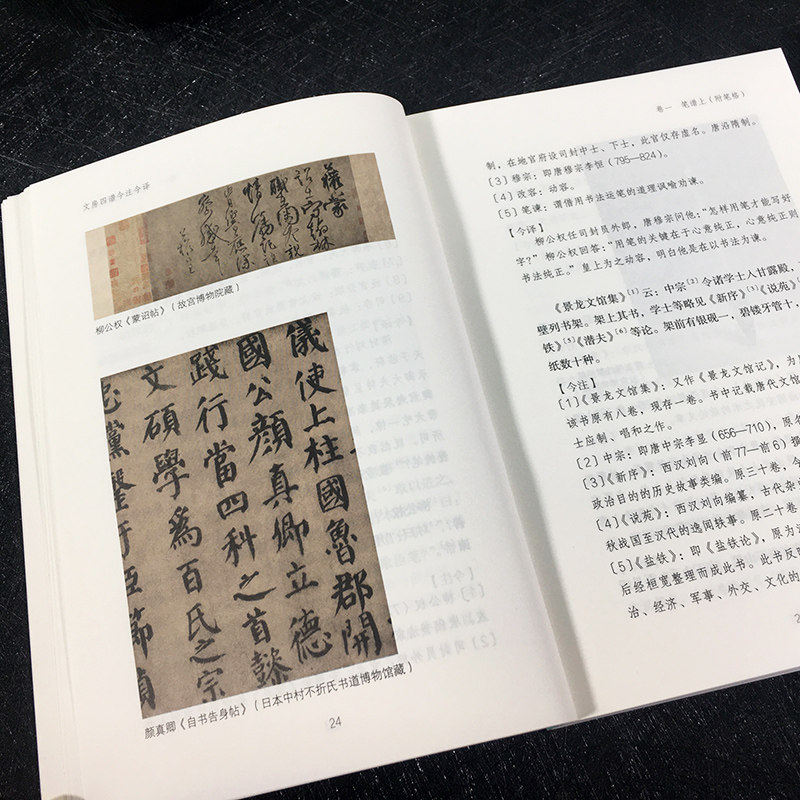 文房四谱今注今译
權蒙
柳公权《蒙诏帖》（故宫博物院藏）
儀使上柱國魯郡開
國公顏真卿立德
踐行當四科之首懿
文碩學爲百氏之宗
忠讜罄于臣節貞
颜真卿《自书告身帖》（日本中村不折氏书道博物馆藏）
24
卷一 笔谱上（附笔格）
制，在地官府设司封中士、下士，此官仅存虚名。唐沿隋制。
[3]穆宗：即唐穆宗李恒（795—824）。
[4]改容：动容。
[5]笔谏：谓借用书法运笔的道理讽喻劝谏。
【今译】
柳公权任司封员外郎，唐穆宗问他：“怎样用笔才能写好
字？”柳公权回答：“用笔的关键在于心意纯正，心意纯正则
书法纯正。”皇上为之动容，明白他是在以书法为谏。
《景龙文馆集》[1]云：中宗[2]令诸学士入甘露殿，
壁列书架。架上其书，学士等略见《新序》[3]《说苑》[4]
铁》[5]《潜夫》[6]等论。架前有银砚一，碧镂牙管十，
纸数十种。
【今注】
[1]《景龙文馆集》：又作《景龙文馆记》，为
该书原有八卷，现存一卷。书中记载唐代文馆
士应制、唱和之作。
[2]中宗：即唐中宗李显（656—710），原名
[3]《新序》：西汉刘向（前77—前6）撰
政治目的的历史故事类编。原三十卷，今
[4]《说苑》：西汉刘向编纂，古代杂
秋战国至汉代的逸闻轶事。原二十卷
[5]《盐铁》：即《盐铁论》，原为
后经桓宽整理而成此书。此书反映
治、经济、军事、外交、文化的